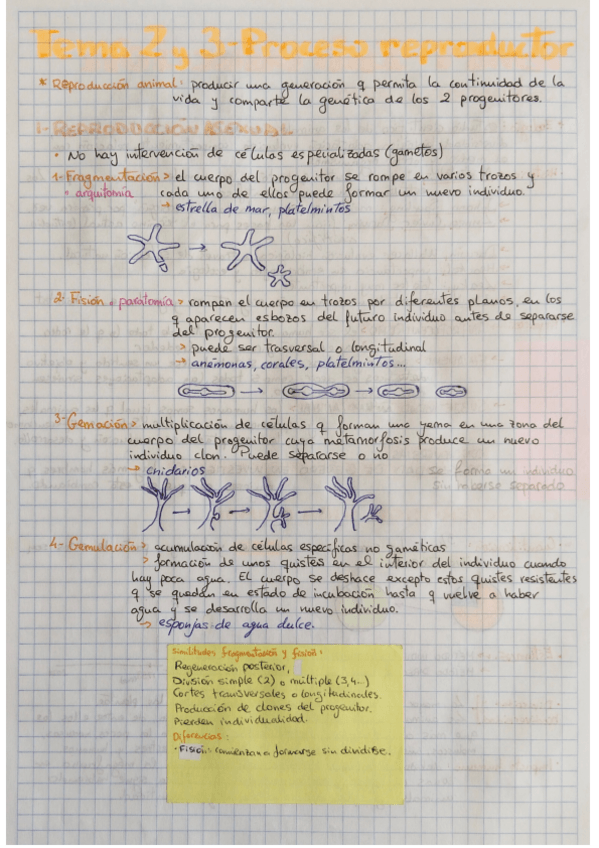 Tema 2 y 3 - Proceso reproductor
* Reproducción animal: producir una generación q permita la continuidad de la
vida y comparte la genética de los 2 progenitores.
1- REPRODUCCIÓN ASEXUAL
• No hay intervención de células especializadas (gametos)
1- Fragmentación > el cuerpo del progenitor se rompe en varios trozos y
o arquitomía cada uno de ellos puede formar un nuevo individuo.
→ estrella de mar, platelmintos
2- Fisión o paratomía > rompen el cuerpo en trozos por diferentes planos, en los
q aparecen esbozos del futuro individuo antes de separarse
del progenitor.
> puede ser trasversal o longitudinal
→ anémonas, corales, platelmintos...
3- Gemación > multiplicación de células q forman una yema en una zona del
cuerpo del progenitor cuya metamorfosis produce un nuevo
individuo clon. Puede separarse o no
→ cnidarios
se forma un individuo
sin haberse separado
4- Gemulación > acumulación de células específicas no gaméticas
> formación de unos quistes en el interior del individuo cuando
hay poca agua. El cuerpo se deshace excepto estos quistes resistentes
q se quedan en estado de incubación hasta q vuelve a haber
agua y se desarrolla un nuevo individuo.
→ esponjas de agua dulce.
Similitudes fragmentación y fisión:
Regeneración posterior,
División simple (2) o múltiple (3,4...)
Cortes transversales o longitudinales.
Producción de clones del progenitor.
Pierden individualidad.
Diferencias:
· Fisión: comienzan a formarse sin dividirse.